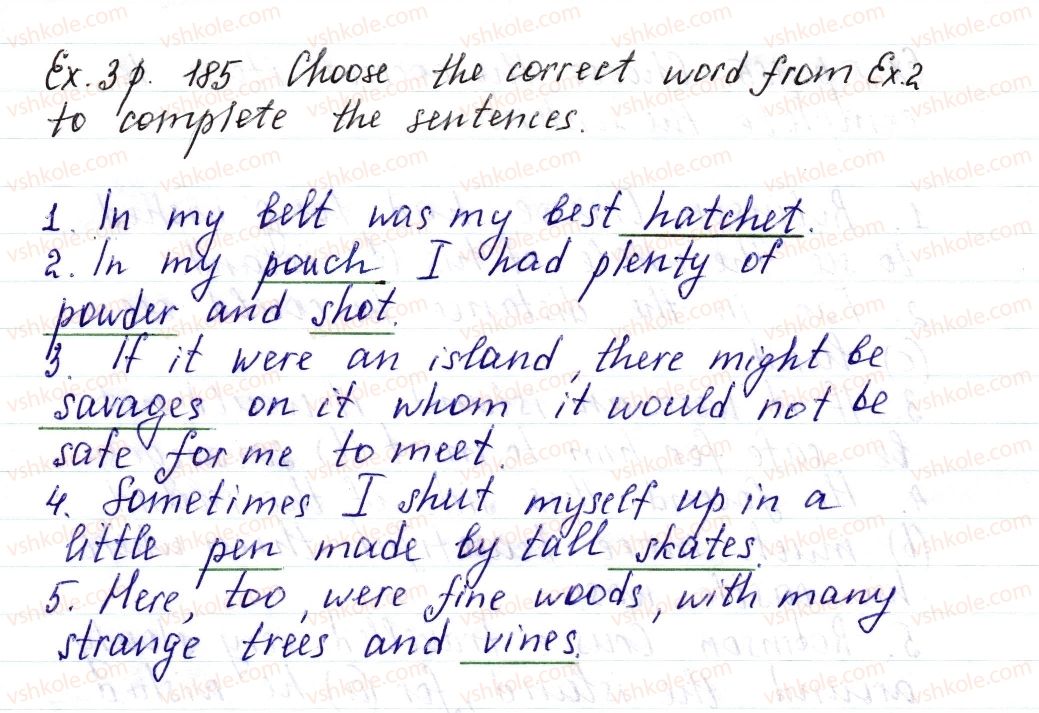 Ex. 3 p. 185 Choose the correct word from Ex. 2
to complete the sentences.
1. In my belt was my best hatchet.
2. In my pouch I had plenty of
powder and shot.
3. If it were an island, there might be
savages on it whom it would not be
safe for me to meet.
4. Sometimes I shut myself up in a
little pen made by tall skates.
5. Here, too, were fine woods, with many
strange trees and vines.
vshkole.com